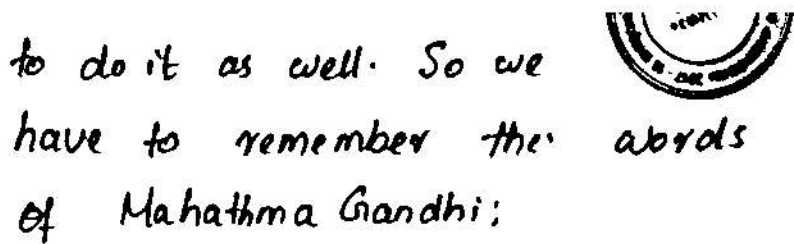 to do it as well. So we
have to remember the words
of Mahathma Gandhi;